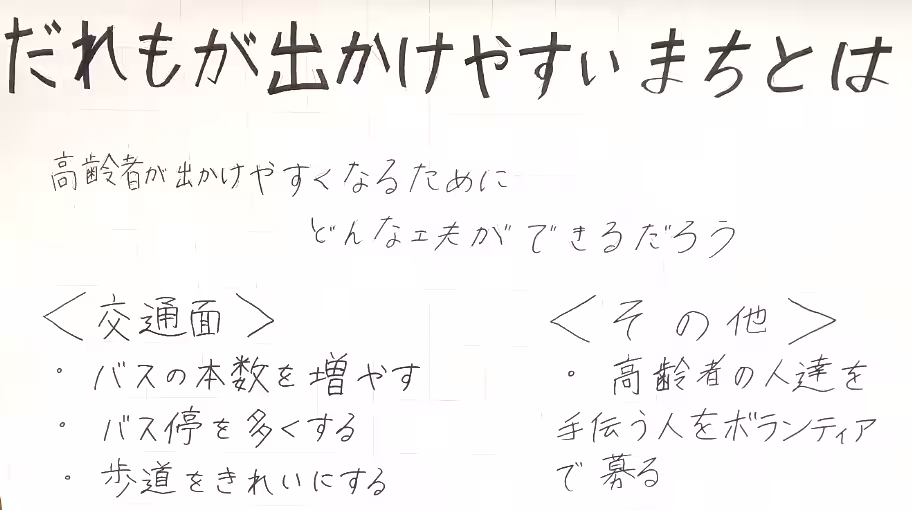 だれもが出かけやすいまちとは
高齢者が出かけやすくなるために
どんな工夫ができるだろう
<交通面>
・バスの本数を増やす
・バス停を多くする
・歩道をきれいにする
<その他>
・高齢者の人達を
手伝う人をボランティア
で募る